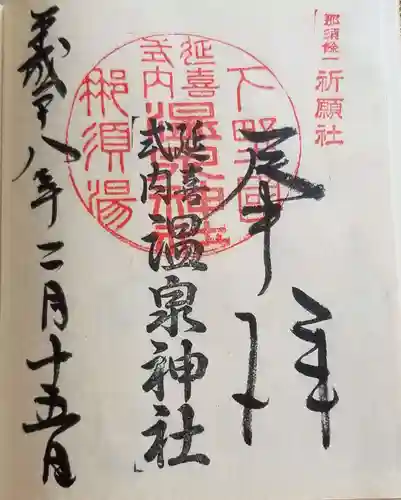 那須餘一
祈願社
奉拝
下野國
延喜
式内
温泉神社
那須湯
延喜
式内
温泉神社
平成十八年二月十五日